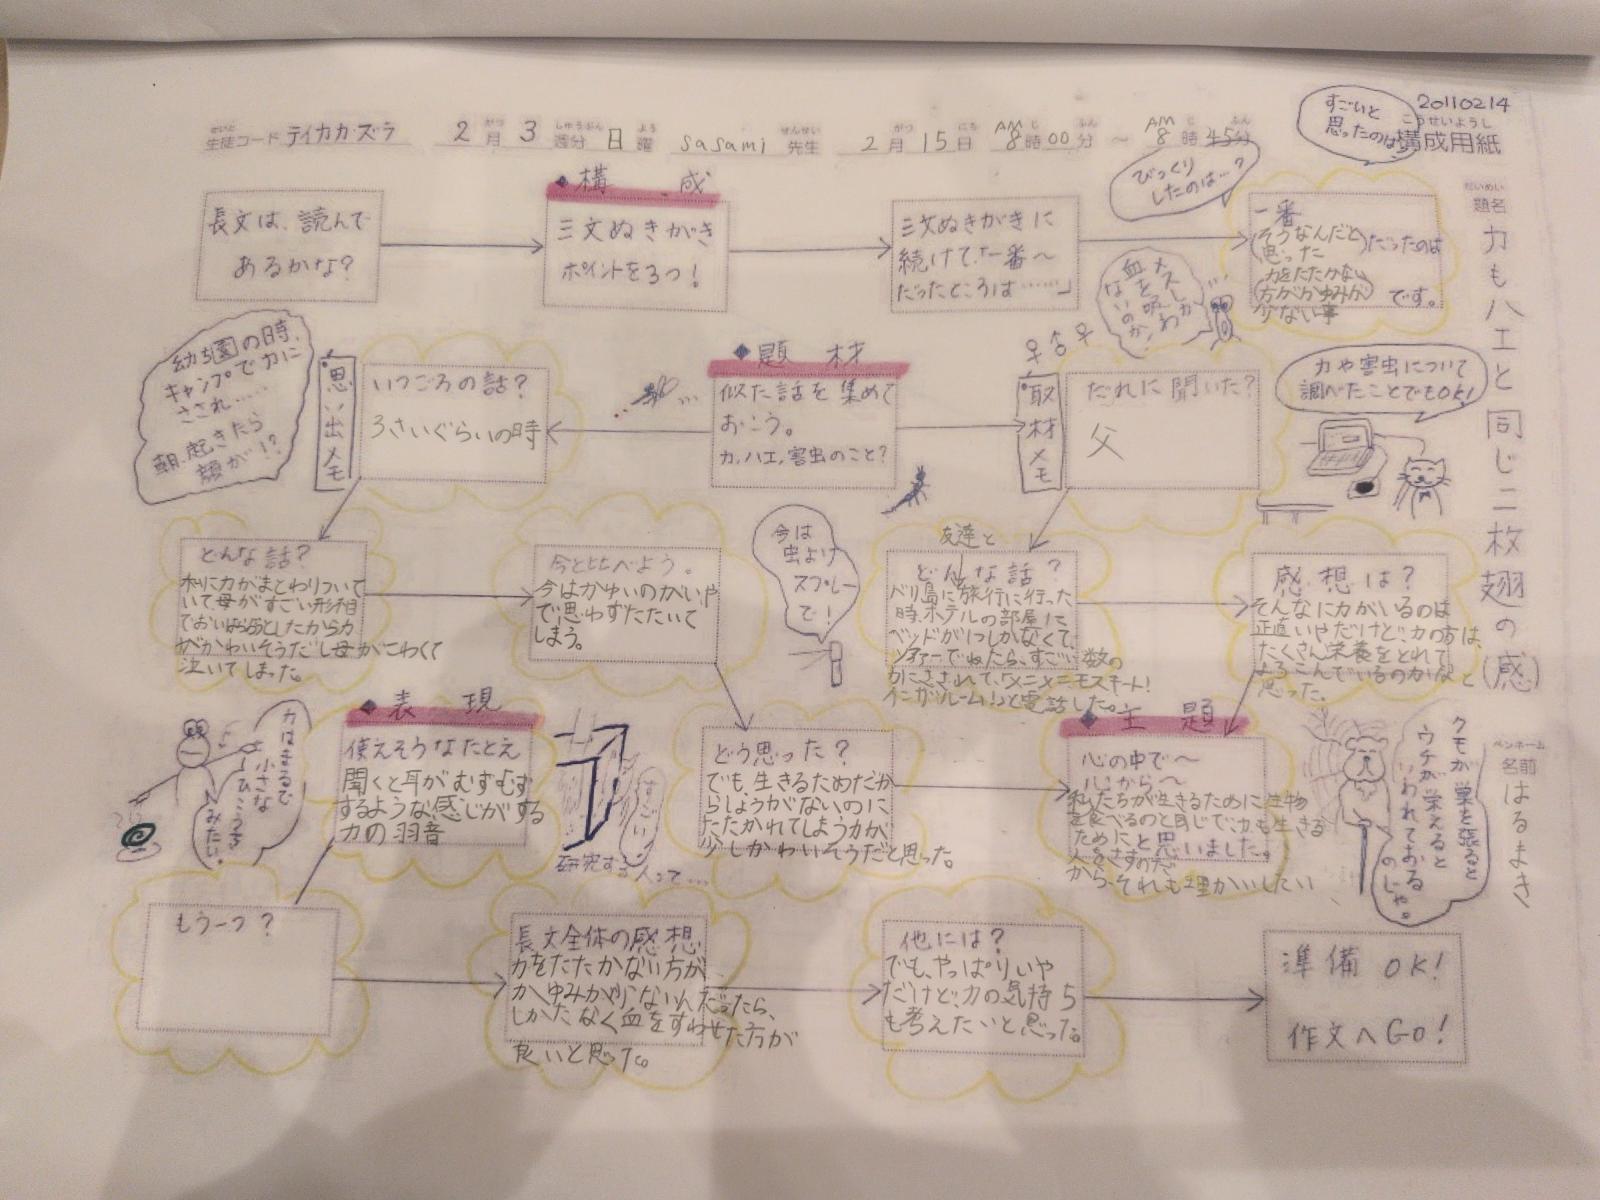 20110214
こうせいようし
構成用紙
せいと
生徒コード テイカカズラ 2月 3週分 日曜 sasami先生 2月15日 AM8時00分 ～ AM8時45分
だいめい
題名
力もハエと同じ二枚翅の(感)
ペンネーム
名前
はるまき
すごいと
思ったのは?
びっくり
したのは…?
長文は、読んで
あるかな?
◆構 成
三文ぬきがき
ポイントを3つ!
三文ぬきがきに
続けて「一番～
だったところは……」
一番
(そうなんだと
思った)だったのは
カをたたかない
方がかゆみが
少ない事
です。
メスしか
血を吸わ
ないのか!
♀♂♀
幼ち園の時、
キャンプでカに
さされ……
朝、起きたら
顔が!?
思い出メモ
いつごろの話?
3さいぐらいの時
◆題 材
似た話を集めて
おこう。
カ,ハエ,害虫のこと?
取材メモ
だれに聞いた?
父
カや害虫について
調べたことでもOK!
どんな話?
木にカがまとわりついて
いて母がすごい形相
でおいはらおうとしたからカ
がかわいそうだし母がこわくて
泣いてしまった。
今と比べよう。
今はかゆいのがいや
で思わずたたいて
しまう。
今は
虫よけ
スプレー
で!
友達と
どんな話?
バリ島に旅行に行った
時、ホテルの部屋に
ベッドが1つしかなくて、
ソファーでねたら、すごい数の
カにさされて、「メニメニモスキート!
インザルーム!」と電話した。
感想は?
そんなにカがいるのは
正直いやだけど、カの方は、
たくさん栄養をとれて
よろこんでいるのかなと
思った。
カはまるで
小さな
ひこうき
みたい。
◆表 現
使えそうなたとえ
聞くと耳がむずむず
するような感じがする
カの羽音
すごい
研究する人って…
どう思った?
でも、生きるためだか
らしょうがないのに
たたかれてしまうカが
少しかわいそうだと思った。
◆主 題
心の中で～
心から～
私たちが生きるために生物
を食べるのと同じで、カも生きる
ためにと思いました。
人をさすのだ
から、それも理かいしたい
クモが巣を張ると
ウチが栄えると
いわれておる
のじゃ。
もう一つ?
長文全体の感想
カをたたかない方が
かゆみが少ないんだったら、
しかたなく血をすわせた方が
良いと思った。
他には?
でも、やっぱりいや
だけど、カの気持ち
も考えたいと思った。
準備 OK!
作文へGo!